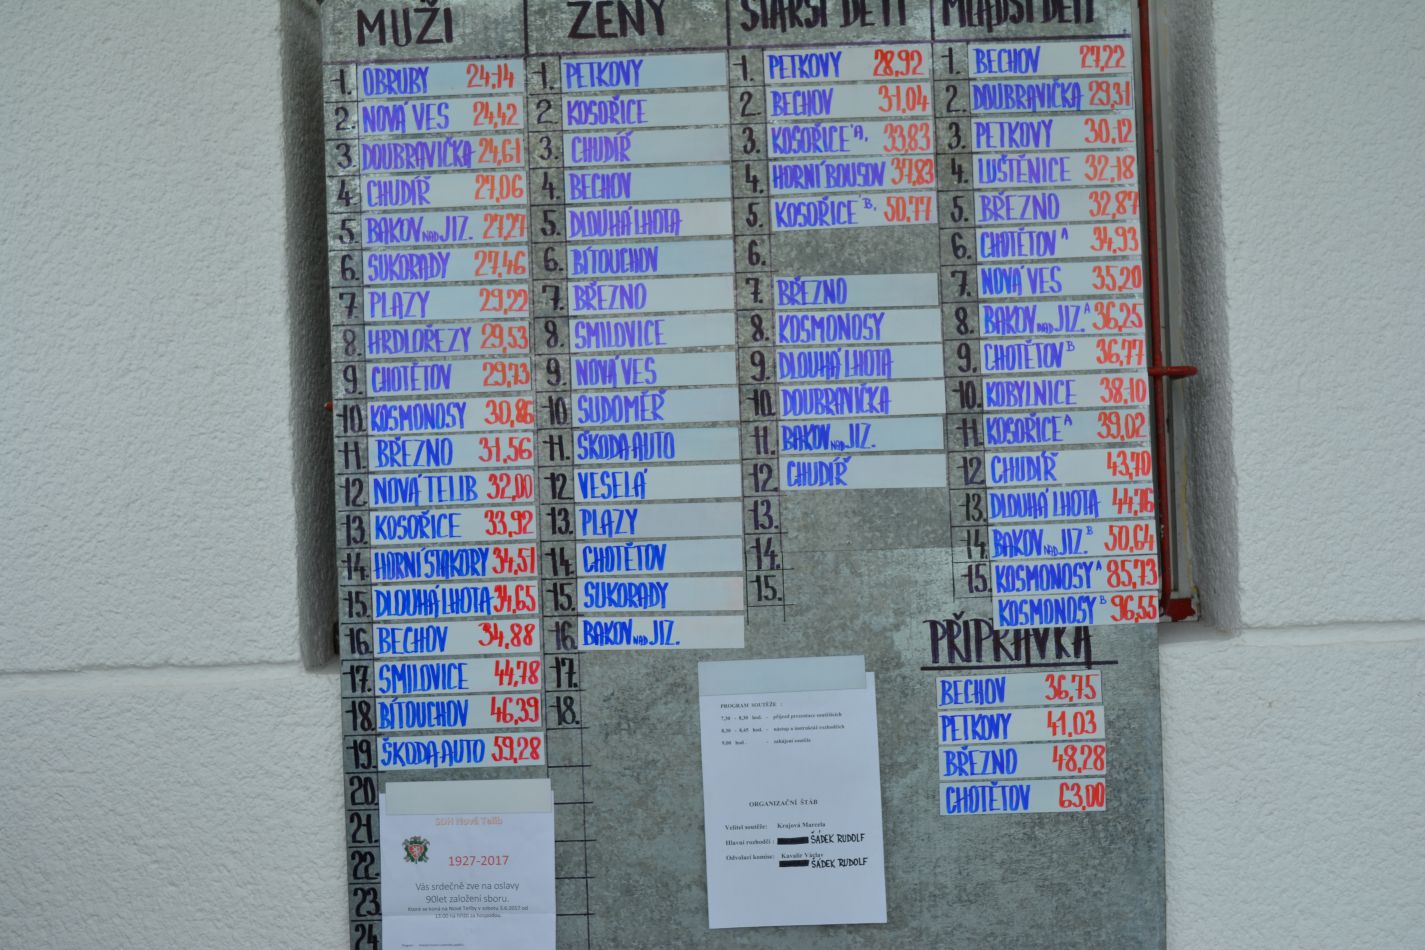 MUŽI
1. OBRUBY 24,14
2. NOVÁ VES 24,42
3. DOUBRAVIČKA 24,61
4. CHUDÍŘ 27,06
5. BAKOV NAD JIZ. 27,27
6. SUKORADY 27,46
7 PLAZY 29,22
8 HRDLOŘEZY 29,53
9. CHOTĚTOV 29,73
10. KOSMONOSY 30,86
11. BŘEZNO 31,56
12. NOVÁ TELIB 32,00
13. KOSOŘICE 33,92
14. HORNÍ STAKORY 34,51
15. DLOUHÁ LHOTA 34,65
16. BECHOV 34,88
17. SMILOVICE 44,78
18. BÍTOUCHOV 46,39
19. ŠKODA AUTO 59,28
20.
21.
22.
23.
24
ŽENY
1. PETKOVY
2. KOSOŘICE
3. CHUDÍŘ
4. BECHOV
5. DLOUHÁ LHOTA
6. BÍTOUCHOV
7. BŘEZNO
8. SMILOVICE
9. NOVÁ VES
10. SUDOMĚŘ
11. ŠKODA AUTO
12 VESELÁ
13. PLAZY
14. CHOTĚTOV
15. SUKORADY
16. BAKOV NAD JIZ.
17.
18.
STARŠÍ DĚTI
1. PETKOVY 28,92
2. BECHOV 31,04
3. KOSOŘICE "A" 33,83
4. HORNÍ BOUSOV 37,83
5. KOSOŘICE "B" 50,77
6.
7. BŘEZNO
8. KOSMONOSY
9. DLOUHÁ LHOTA
10. DOUBRAVIČKA
11. BAKOV NAD JIZ.
12. CHUDÍŘ
13.
14.
15.
MLADŠÍ DĚTI
1. BECHOV 27,22
2. DOUBRAVIČKA 29,31
3. PETKOVY 30,12
4. LUŠTĚNICE 32,18
5. BŘEZNO 32,87
6. CHOTĚTOV A 34,93
7. NOVÁ VES 35,20
8. BAKOV NAD JIZ. A 36,25
9. CHOTĚTOV B 36,77
10. KOBYLNICE 38,10
11. KOSOŘICE A 39,02
12 CHUDÍŘ 43,70
13. DLOUHÁ LHOTA 44,76
14. BAKOV NAD JIZ. B 50,64
15. KOSMONOSY A 85,73
KOSMONOSY B 96,55
PŘÍPRAVKA
BECHOV 36,75
PETKOVY 41,03
BŘEZNO 48,28
CHOTĚTOV 63,00
PROGRAM SOUTĚŽE :
7,30 - 8,30 hod. - příjezd prezentace soutěžících
8,30 - 8,45 hod. - nástup a instruktáž rozhodčích
9,00 hod. - zahájení soutěže
ORGANIZAČNÍ ŠTÁB
Velitel soutěže: Krajová Marcela
Hlavní rozhodčí : ŠÁDEK RUDOLF
Odvolací komise: Kavalír Václav
ŠÁDEK RUDOLF
SDH Nová Telib
1927-2017
Vás srdečně zve na oslavy
90let založení sboru.
Která se koná na Nové Teliby v sobotu 3.6.2017 od
13:00 na hřišti za hospodou.